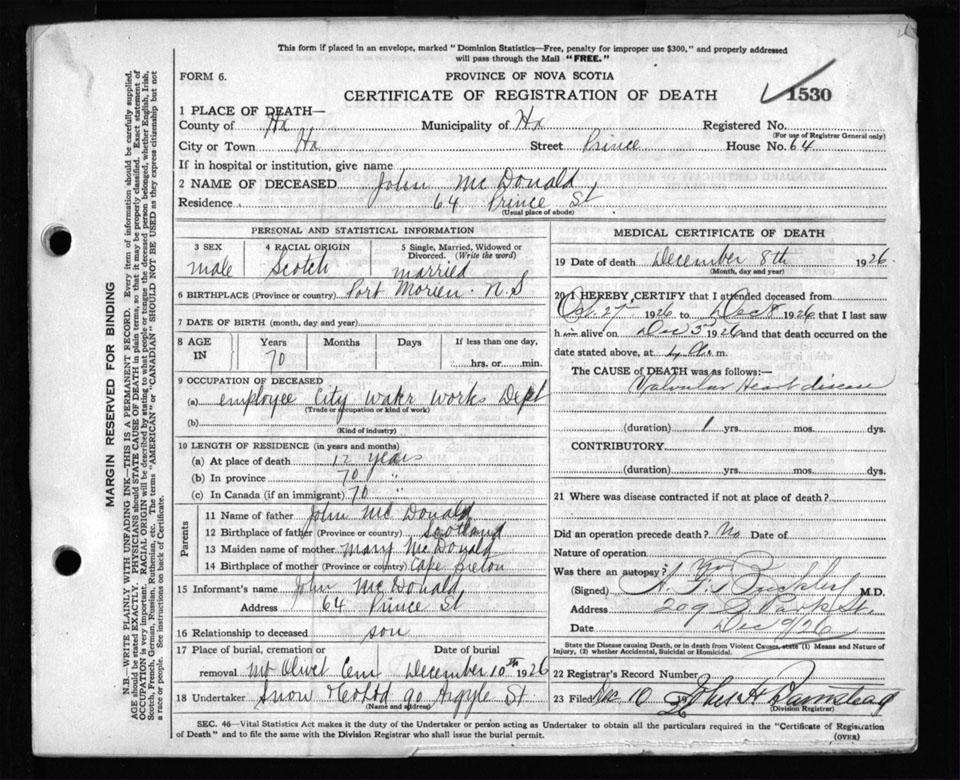 This form if placed in an envelope, marked "Dominion Statistics—Free, penalty for improper use $300," and properly addressed
will pass through the Mail "FREE."
FORM 6.
PROVINCE OF NOVA SCOTIA
CERTIFICATE OF REGISTRATION OF DEATH
1530
1 PLACE OF DEATH—
County of Hx Municipality of Hx Registered No.
(For use of Registrar General only)
City or Town Hx Street Prince House No. 64
If in hospital or institution, give name
2 NAME OF DECEASED John McDonald
Residence 64 Prince St
(Usual place of abode)
PERSONAL AND STATISTICAL INFORMATION
3 SEX 4 RACIAL ORIGIN 5 Single, Married, Widowed or
Divorced. (Write the word)
male Scotch married
6 BIRTHPLACE (Province or country) Port Morien. N.S
7 DATE OF BIRTH (month, day and year)
8 AGE IN Years Months Days If less than one day,
70 hrs. or min.
9 OCCUPATION OF DECEASED
(a) employee City water works Dept
(Trade or occupation or kind of work)
(b)
(Kind of industry)
10 LENGTH OF RESIDENCE (in years and months)
(a) At place of death 12 years
(b) In province 70 "
(c) In Canada (if an immigrant) 70 "
Parents
11 Name of father John McDonald
12 Birthplace of father (Province or country) Scotland
13 Maiden name of mother Mary McDonald
14 Birthplace of mother (Province or country) Cape Breton
15 Informant's name John McDonald
Address 64 Prince St
16 Relationship to deceased son
17 Place of burial, cremation or Date of burial
removal Mt Olivet Cem December 10th 1926
18 Undertaker Snow & Co Ltd 90 Argyle St
(Name and address)
MEDICAL CERTIFICATE OF DEATH
19 Date of death December 8th 1926
(Month, day and year)
20 I HEREBY CERTIFY that I attended deceased from
27 1926 to Dec 8 1926 that I last saw
him alive on Dec 3 1926 and that death occurred on the
date stated above, at m.
The CAUSE of DEATH was as follows:—
Valvular Heart disease
(duration) 1 yrs. mos. dys.
CONTRIBUTORY
(duration) yrs. mos. dys.
21 Where was disease contracted if not at place of death?
Did an operation precede death? No Date of
Nature of operation
Was there an autopsy?
(Signed) M.D.
Address 209 Park St.
Date Dec 9/26
State the Disease causing Death, or in death from Violent Causes, state (1) Means and Nature of
Injury, (2) whether Accidental, Suicidal or Homicidal.
22 Registrar's Record Number
23 Filed Dec 10 19
(Division Registrar)
SEC. 46—Vital Statistics Act makes it the duty of the Undertaker or person acting as Undertaker to obtain all the particulars required in the "Certificate of Registration
of Death" and to file the same with the Division Registrar who shall issue the burial permit.
(OVER)
MARGIN RESERVED FOR BINDING
N.B.—WRITE PLAINLY WITH UNFADING INK—THIS IS A PERMANENT RECORD. Every item of information should be carefully supplied.
AGE should be stated EXACTLY. PHYSICIANS should STATE CAUSE OF DEATH in plain terms, so that it may be properly classified. Exact statement of
OCCUPATION is very important. RACIAL ORIGIN will be described by stating to what people or tongue the deceased person belonged, whether English, Irish,
Scotch, French, German, Russian, Ruthenian, etc. The terms "AMERICAN" or "CANADIAN" SHOULD NOT BE USED as they express citizenship but not
a race or people. See instructions on back of Certificate.